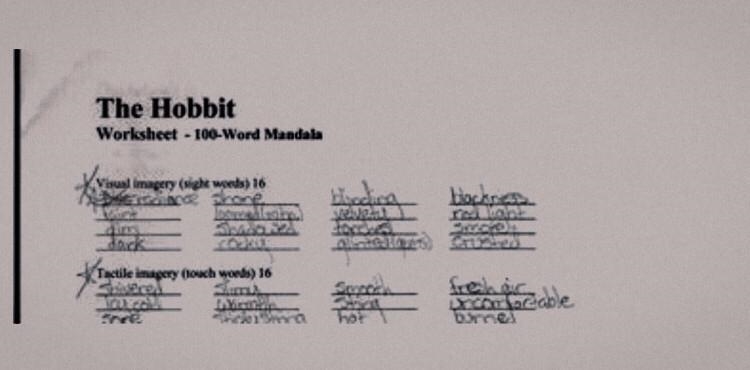 The Hobbit
Worksheet - 100-Word Mandala
Visual imagery (sight words) 16
radiance shone blinding blackness
faint velvety red light
dim shadowed torches smokey
dark rocky glinted crusted
Tactile imagery (touch words) 16
shivered slimy smooth fresh air
icy cold warmth sting uncomfortable
sore hot burned